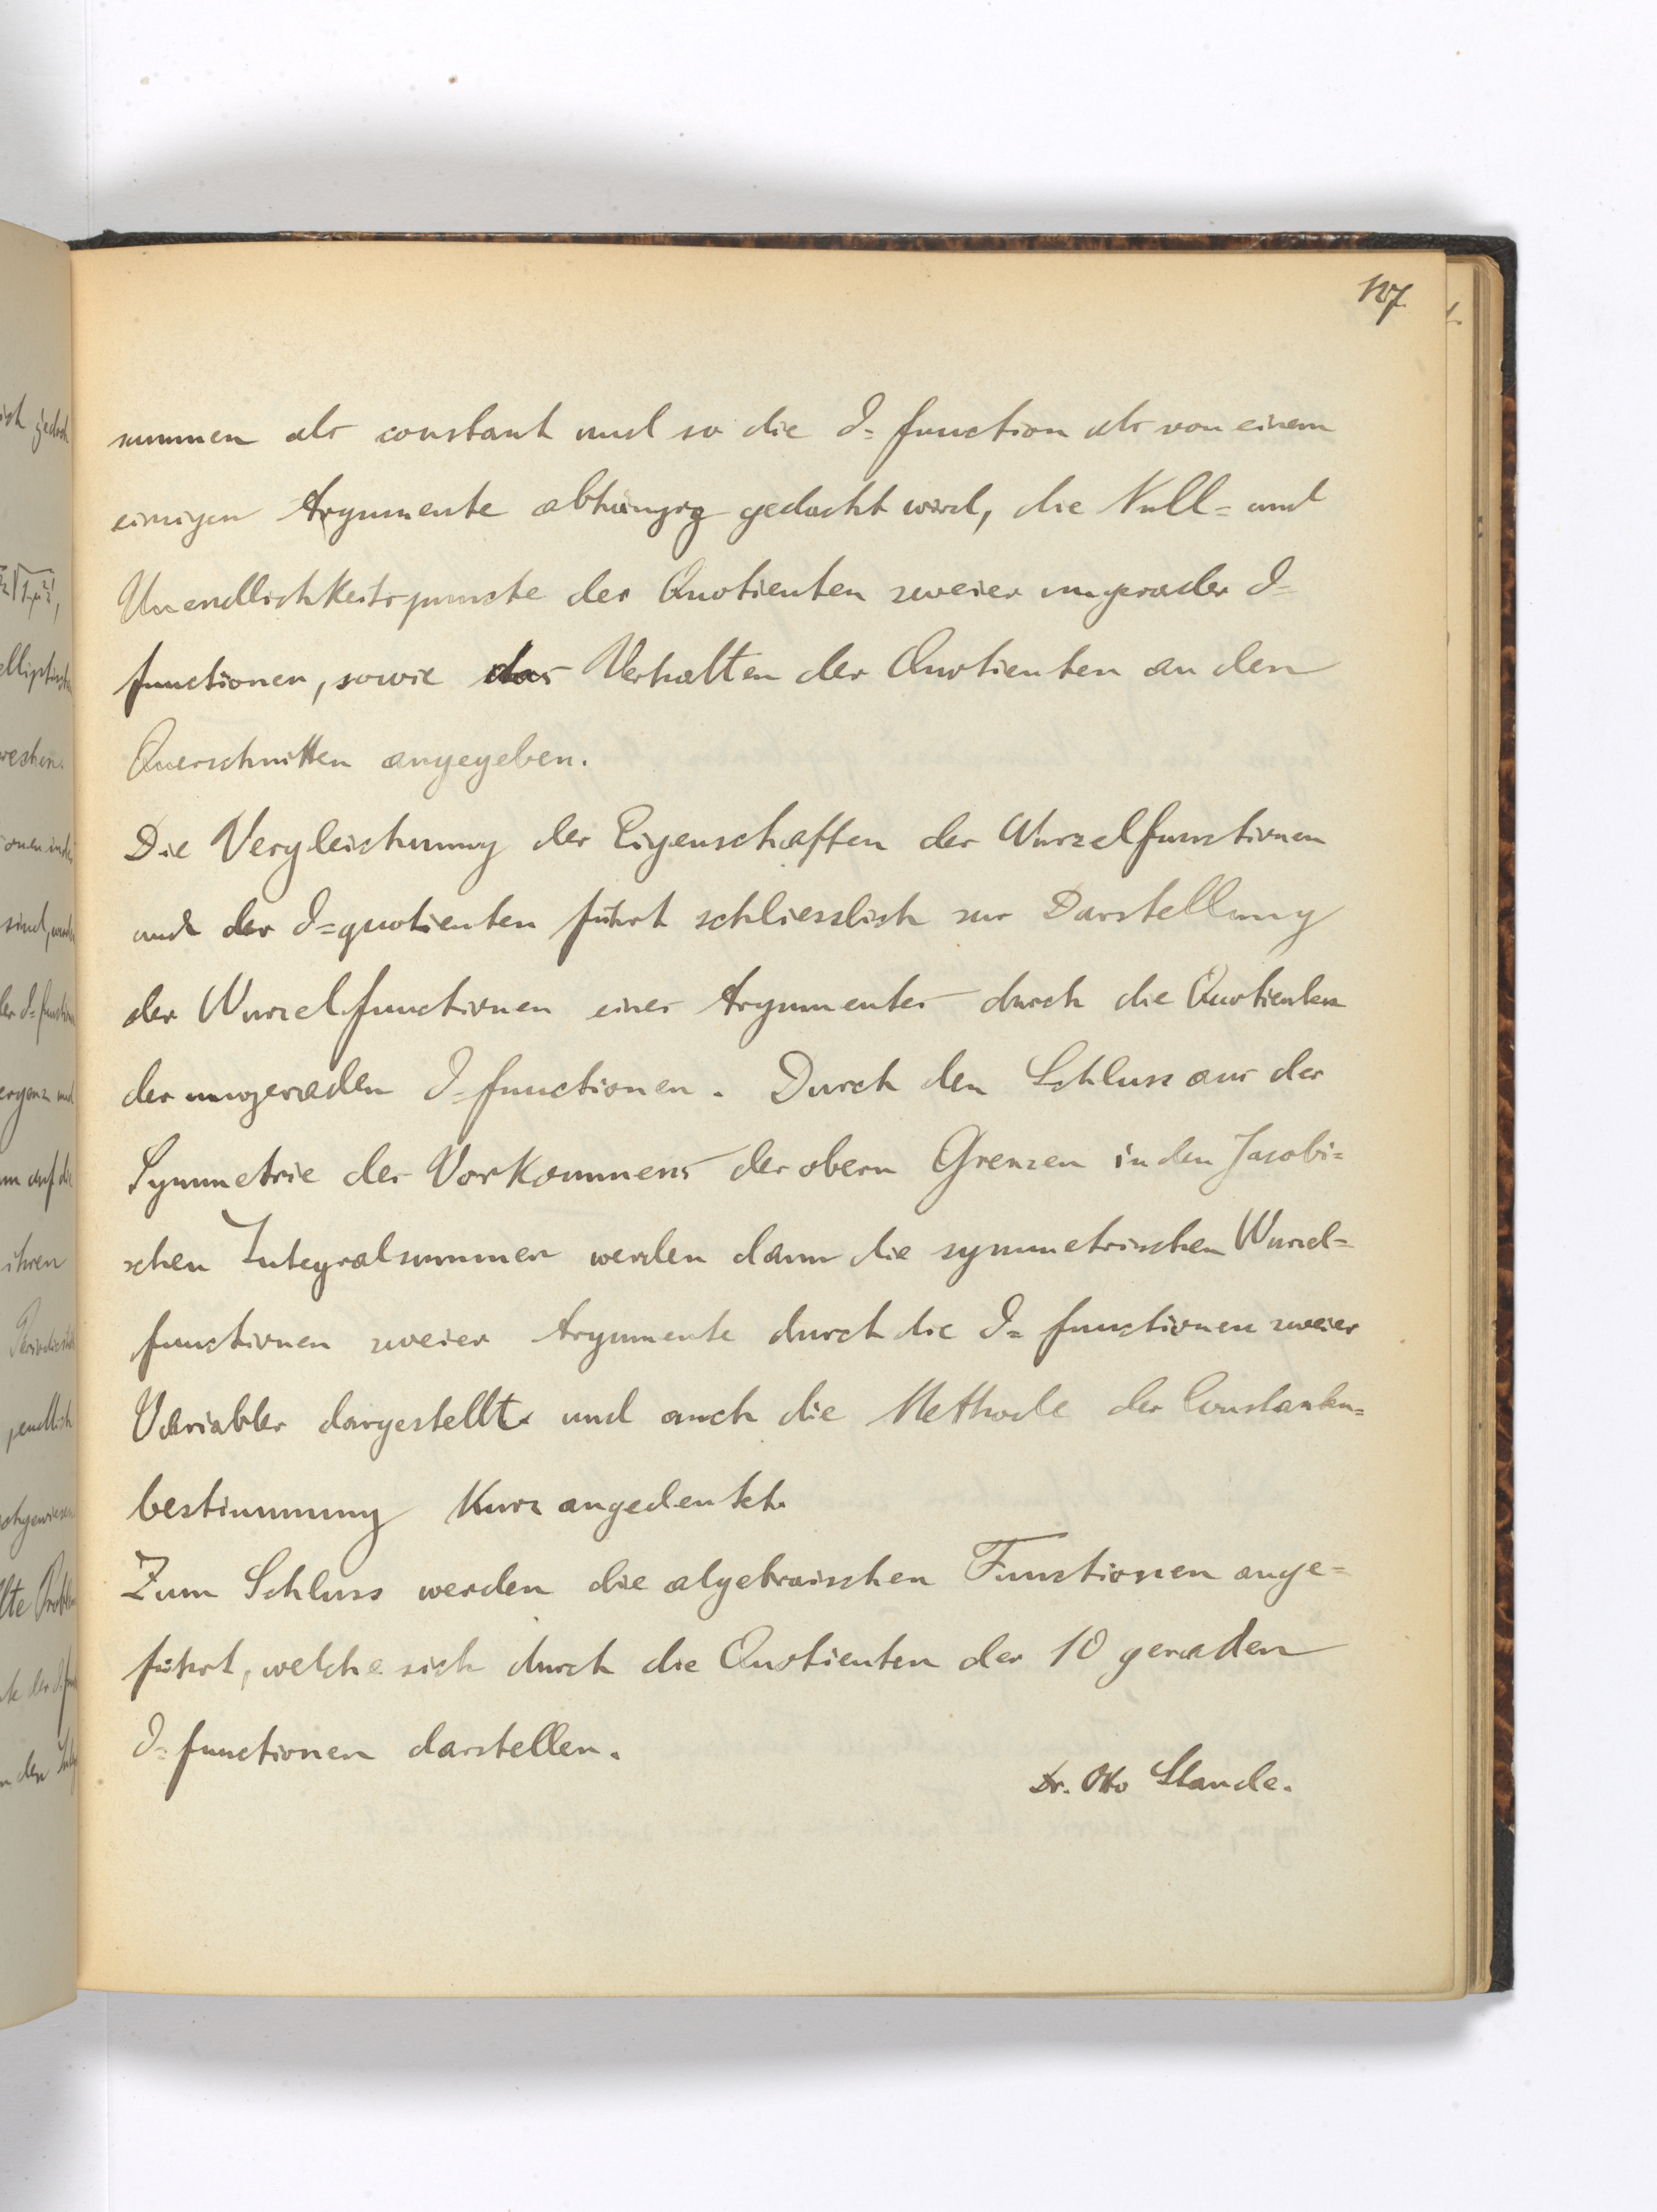 107
summen als constant und so die ϑ=function als von einem
einzigen Argumente abhängig gedacht wird, die Null= und
Unendlichkeitspuncte des Quotienten zweier ungerader ϑ=
functionen, sowie das Verhalten der Quotienten an den
Querschnitten angegeben.
Die Vergleichung der Eigenschaften der Wurzelfunctionen
und der ϑ=quotienten führt schliesslich zur Darstellung
der Wurzelfunctionen eines Argumentes durch die Quotienten
der ungeraden ϑ=functionen. Durch den Schluss aus der
Symmetrie des Vorkommens der obern Grenzen in den Jacobi=
schen Integralsummen werden dann die symmetrischen Wurzel=
functionen zweier Argumente durch die ϑ=functionen zweier
Variabler dargestellt und auch die Methode der Constanten=
bestimmung kurz angedeutet.
Zum Schluss werden die algebraischen Functionen ange=
führt, welche sich durch die Quotienten der 10 geraden
ϑ=functionen darstellen.
Dr. Otto Staude.